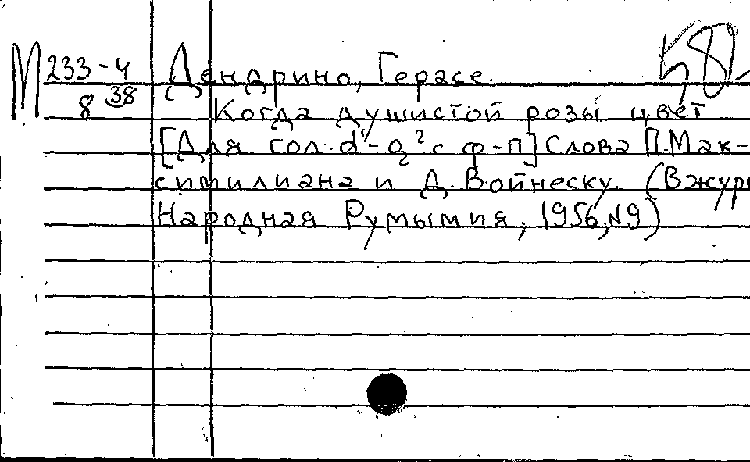 М 233-4 Дендрино, Герасе. 58-
8 38 Когда душистой розы цвет
[Для гол. d¹-a² с ф-п] Слова П. Мак-
симилиана и Д. Войнеску. (В журн
Народная Румымия, 1956, №9)